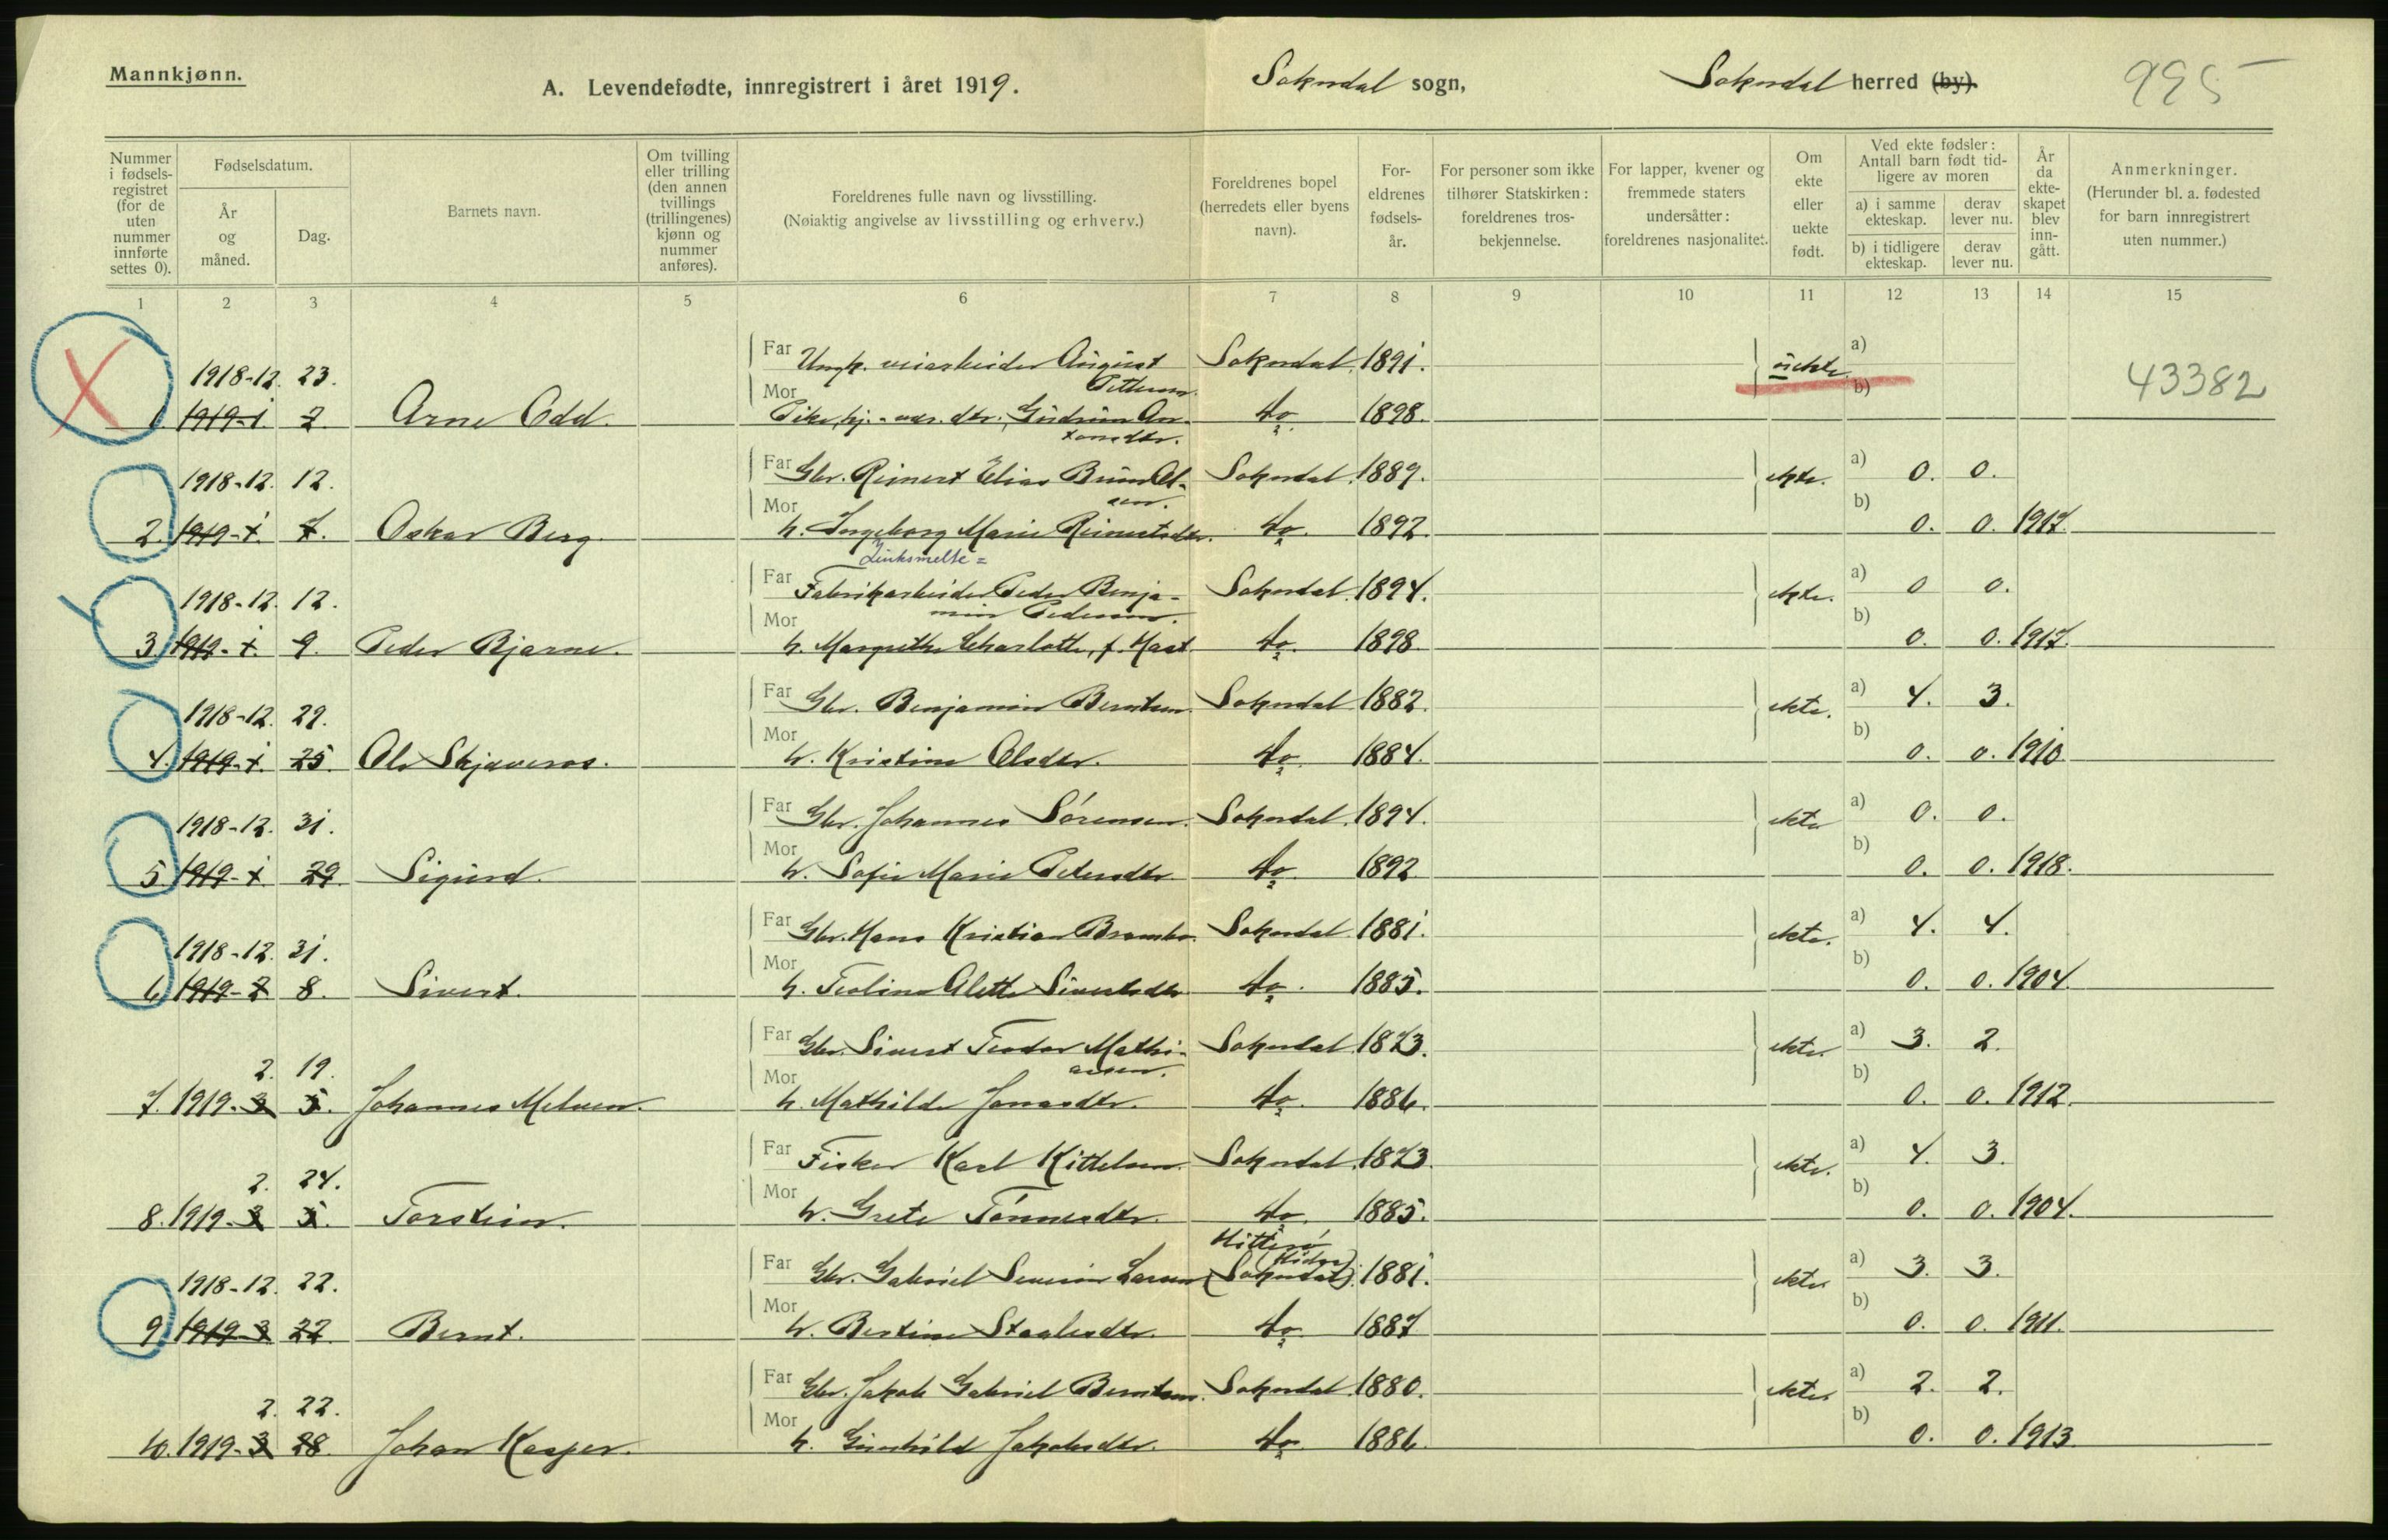 Mannkjønn.
A. Levendefødte, innregistrert i året 1919.
Sokndal sogn,
Sokndal herred (by).
995
Nummer i fødsels-registret (for de uten nummer innførte settes 0).
Fødselsdatum.
År og måned.
Dag.
Barnets navn.
Om tvilling eller trilling (den annen tvillings (trillingenes) kjønn og nummer anføres).
Foreldrenes fulle navn og livsstilling.
(Nøiaktig angivelse av livsstilling og erhverv.)
Foreldrenes bopel (herredets eller byens navn).
For-eldrenes fødsels-år.
For personer som ikke tilhører Statskirken: foreldrenes tros-bekjennelse.
For lapper, kvener og fremmede staters undersåtter: foreldrenes nasjonalitet.
Om ekte eller uekte født.
Ved ekte fødsler: Antall barn født tid-ligere av moren
a) i samme ekteskap.
derav lever nu.
b) i tidligere ekteskap.
derav lever nu.
År da ekte-skapet blev inn-gått.
Anmerkninger.
(Herunder bl. a. fødested for barn innregistrert uten nummer.)
1 2 3 4 5 6 7 8 9 10 11 12 13 14 15
Far Ungk. veiarbeider August Sokndal 1891. uekte. a)
1918-12. 23. Pettersen. 43382
Mor b)
1. 1919-1. 2. Arne Odd. Pike, hj.-vær. dtr., Gudrun An- do. 1898.
tonsdtr.
Far Gbr. Reinert Elias Bruun Ol- Sokndal. 1889. ekte. a) 0. 0.
1918-12. 12. sen.
Mor b)
2. 1919-1. 7. Oskar Berg. h. Ingeborg Marie Reinertsdtr. do. 1892. 0. 0. 1917.
Zinksmelte=
Far Fabrikarbeider Peder Benja- Sokndal. 1894. ekte. a) 0 0.
1918-12. 12. min Pedersen.
Mor b)
3. 1919-1. 9. Peder Bjarne. h. Margrethe Charlotte, f. Mast. do. 1898. 0. 0. 1917.
Far Gbr. Benjamin Berntsen. Sokndal 1882. ekte. a) 4. 3.
1918-12. 29.
Mor b)
4. 1919-1. 25. Ole Skjæveros. h. Kristine Olsdtr. do. 1884. 0. 0. 1910.
Far Gbr. Johannes Sörensen. Sokndal. 1894. ekte a) 0. 0.
1918-12. 31.
Mor b)
5. 1919-1. 29. Sigurd. h. Sofie Marie Pedersdtr. do. 1892. 0. 0. 1918.
Far Gbr. Hans Kristian Sokndal 1881. ekte. a) 4. 4.
1918-12. 31.
Mor b)
6. 1919-2 8. Sivert. h. Teoline Alette Sivertsdtr. do. 1885. 0. 0. 1904.
Far Gbr. Sivert Teodor Mathi- Sokndal 1873. ekte. a) 3. 2.
2. 19. asen.
Mor b)
7. 1919-3 5. Johannes Melven. h. Mathilde Jonasdtr. do. 1886. 0. 0. 1912.
Far Fisker Karl Kittelsen. Sokndal. 1873. ekte. a) 4. 3.
2. 24.
Mor b)
8. 1919-3 5. Torstein. h. Grete Tönnesdtr. do. 1885. 0. 0. 1904.
Hitterö
(Hidra)
Far Gbr. Gabriel Severin Larsen (Sokndal). 1881. ekte a) 3. 3.
1918-12. 22.
Mor b)
9. 1919-3 22. Bernt. h. Bertine Staalesdtr. do. 1887. 0. 0. 1911.
Far Gbr. Jakob Gabriel Berntsen. Sokndal. 1880. ekte a) 2. 2.
2. 22.
Mor b)
10. 1919-3 28. Johan Kasper. h. Gunhild Jakobsdtr. do. 1886. 0. 0. 1913.